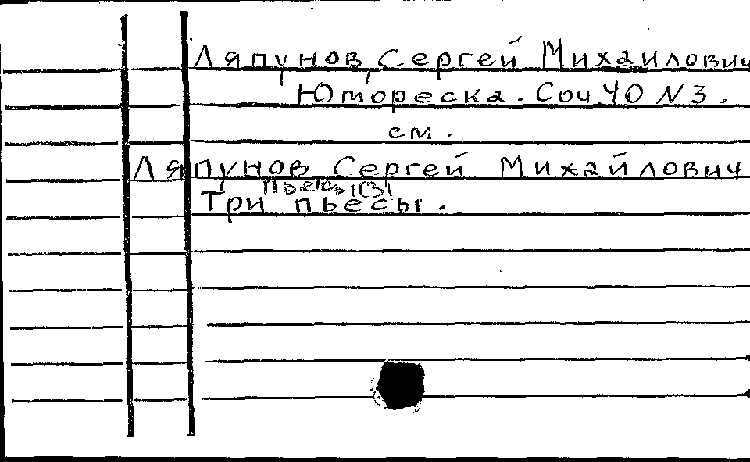 Ляпунов, Сергей Михайлович
Юмореска. Соч. 40 N 3.
см.
Ляпунов Сергей Михайлович
Пьесы(3)
Три пьесы.